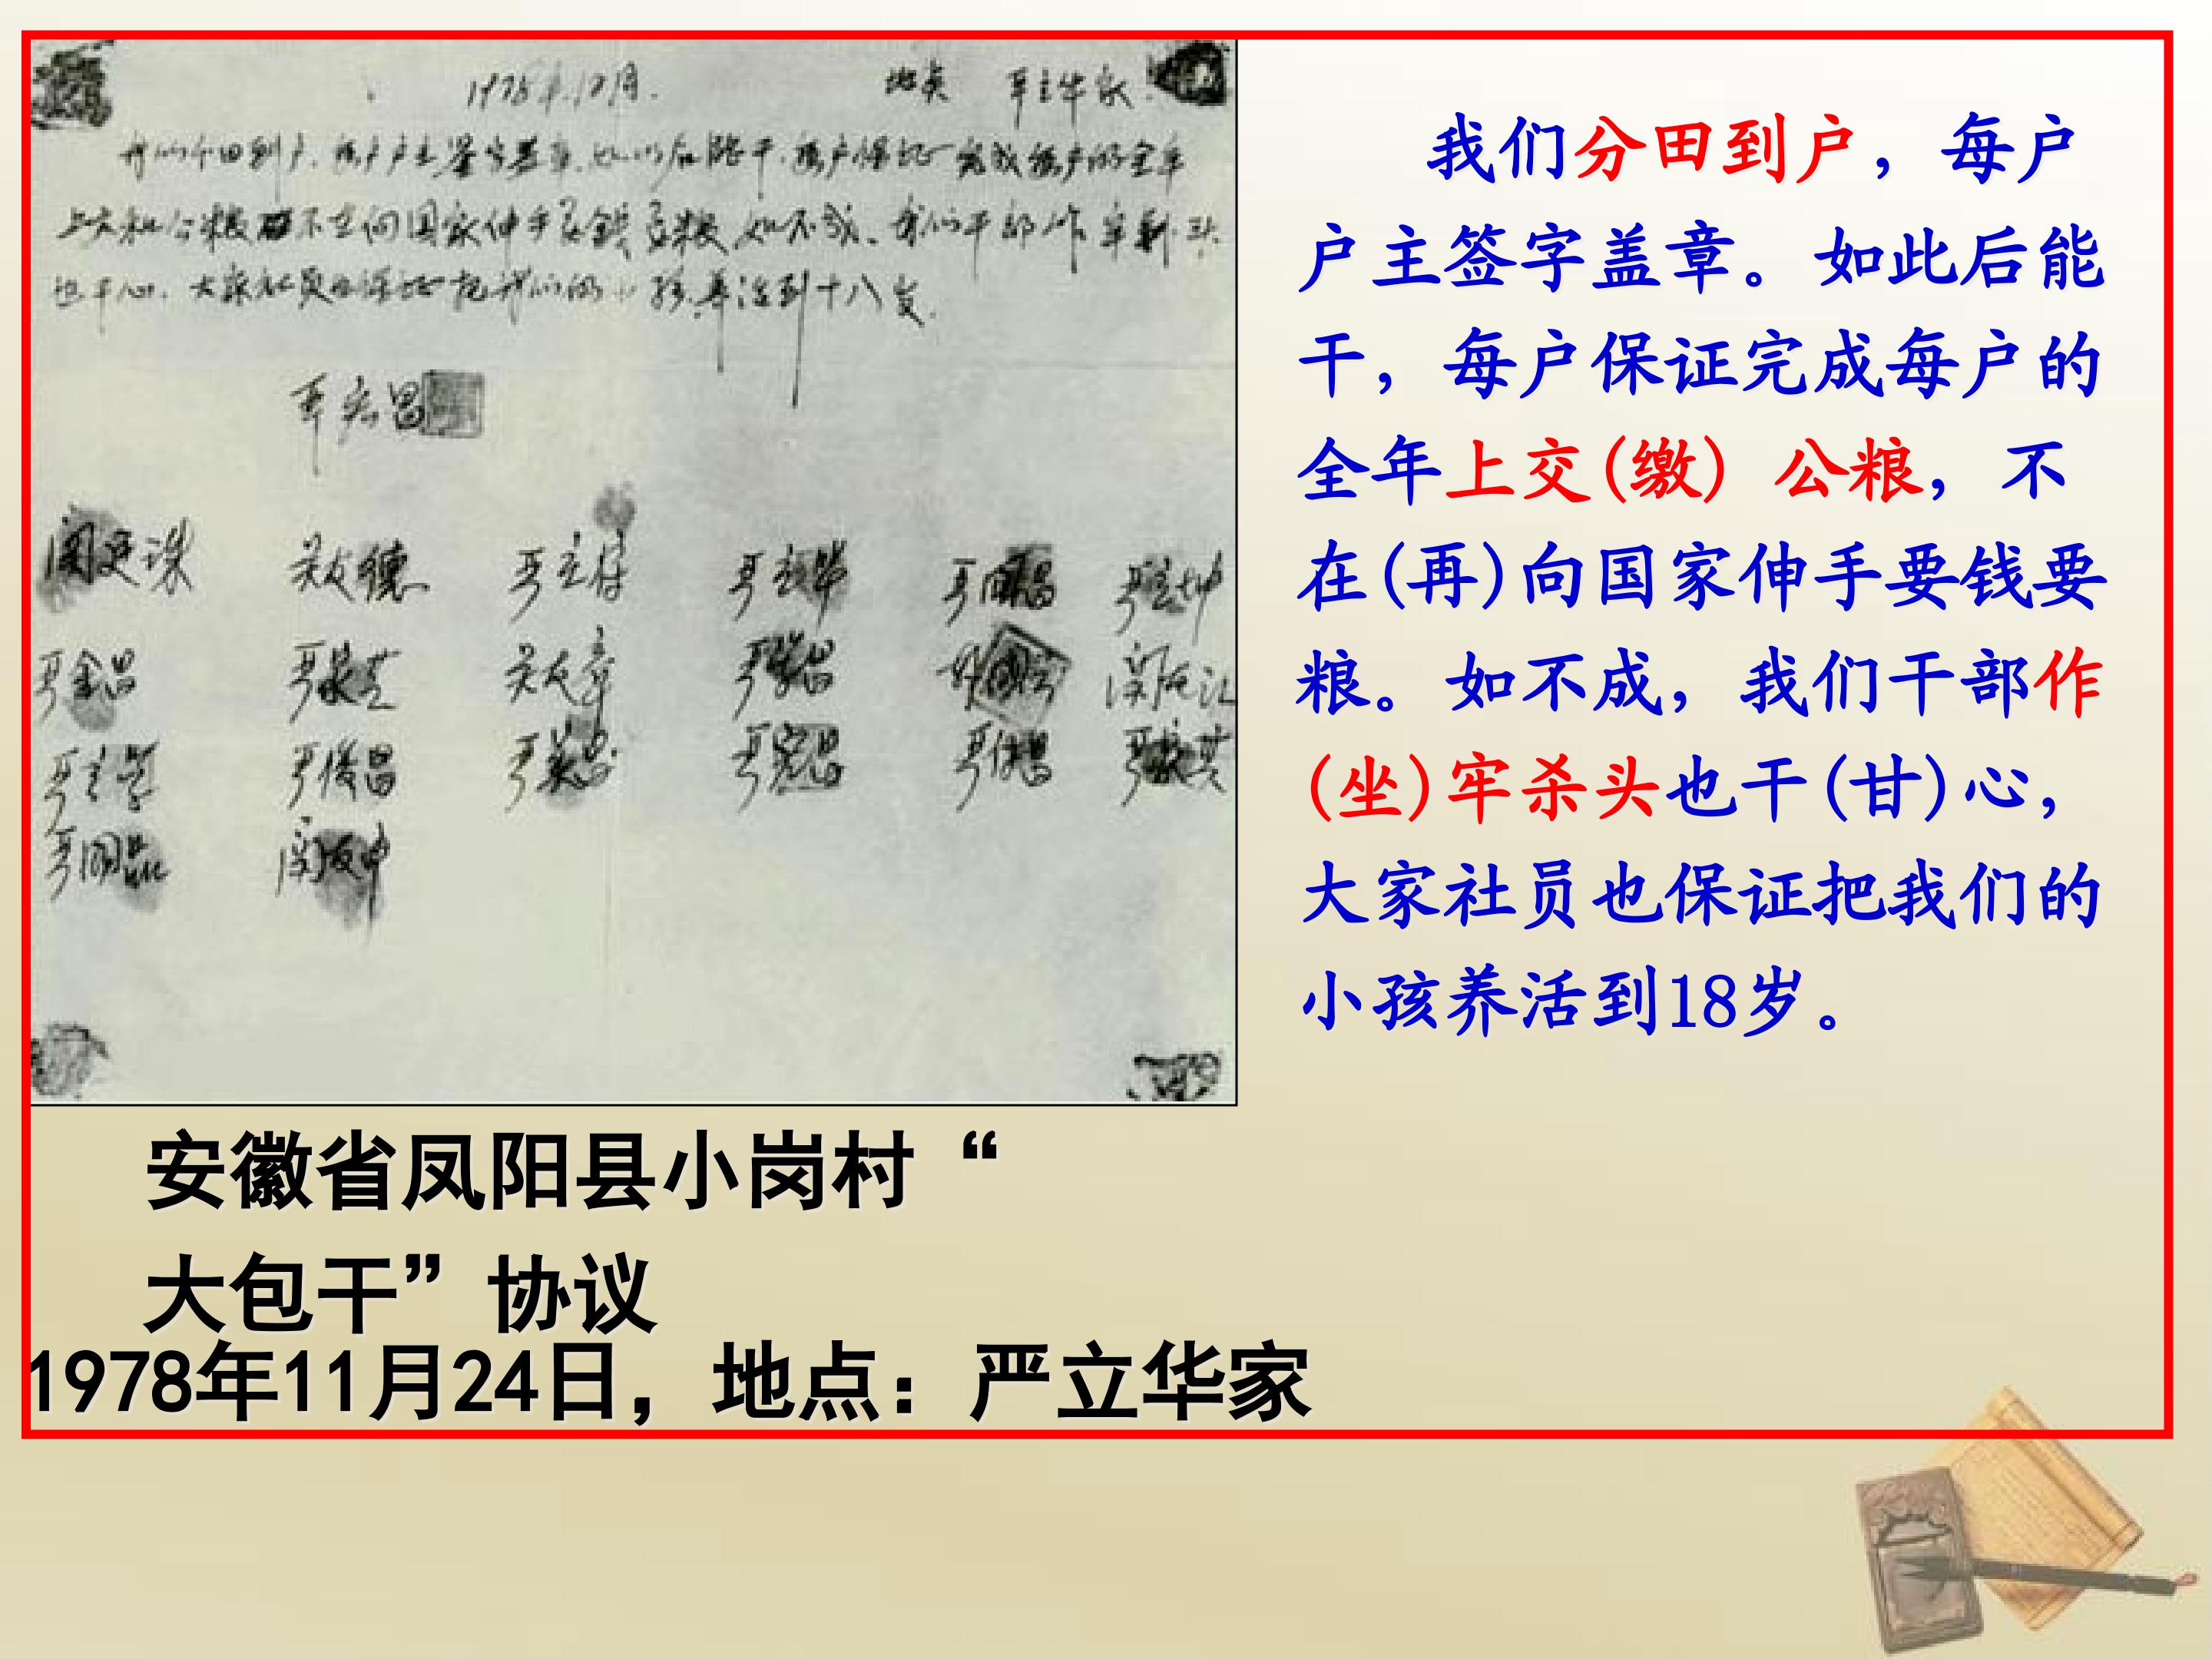 1978年12月. 地点 严立华家.
我们分田到户.每户户主签字盖章.如以后能干.每户保证完成每户的全年
上交和公粮.不在向国家伸手要钱要粮.如不成.我们干部作牢杀头
也干心.大家社员也保证把我们的小孩养活到十八岁.
严宏昌
关友德 严立符 严立华 严国昌 严立坤
严金昌 关友章 严学昌
严立学 严俊昌 严美昌 严宏昌
严国品 关友申
我们分田到户，每户
户主签字盖章。如此后能
干，每户保证完成每户的
全年上交(缴) 公粮，不
在(再)向国家伸手要钱要
粮。如不成，我们干部作
(坐)牢杀头也干(甘)心，
大家社员也保证把我们的
小孩养活到18岁。
安徽省凤阳县小岗村“
大包干”协议
1978年11月24日，地点：严立华家